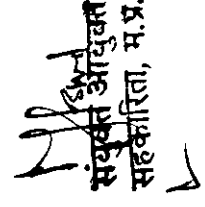 संयुक्त आयुक्त
सहकारिता, म.प्र.